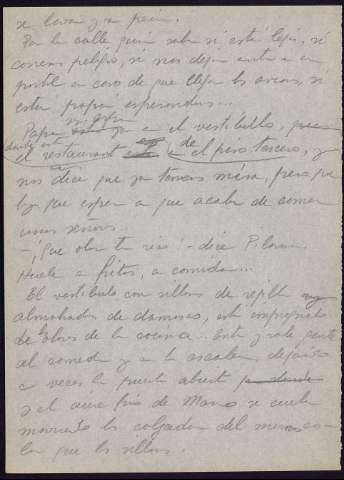 se lavan y se peinan.
Por la calle quien sabe si está lejos, si
corremos peligro, si nos dejan entrar en un
portal en caso de que lleguen los aviones, si
estará papá esperándonos...
Papá nos espera ya en el vestíbulo,
donde está el restaurant en el piso tercero, y
nos dice que ya tenemos mesa, pero que
hay que esperar a que acaben de comer
unos señores.
- ¡Qué olor tan rico! - dice Pilar
Huele a fritos, a comida...
El vestíbulo con sillones de rejilla y
almohadones de damasco, está impregnado
de olores de la cocina. Entra y sale gente
al comedor y a la escalera dejando
a veces la puerta abierta
y el aire frío de Marzo se cuela
moviendo los colgados del mismo co-
lor que los sillones.